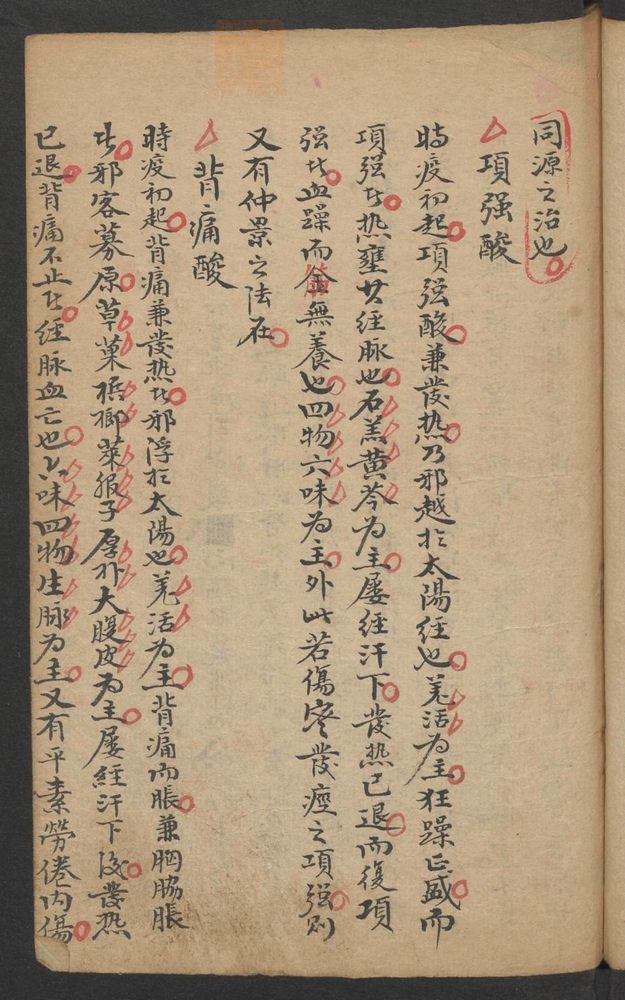 同源之治也
項強酸
時疫初起項强酸兼發热乃邪越於太陽經也羌活为主狂躁正盛而
項强者热壅其经脉也石羔黄芩为主屡经汗下發热已退而復項
强者血躁而筋無養也四物六味为主外此若傷寒發痙之項强则
又有仲景之法在
背痛酸
時疫初起背痛兼發热者邪浮於太陽也羌活为主背痛而脹兼胸脇脹
者邪客募原草菓梹榔萊服子厚朴大腹皮为主屡經汗下後發热
已退背痛不止者经脉血亡也六味四物生脉为主又有平素勞倦内傷